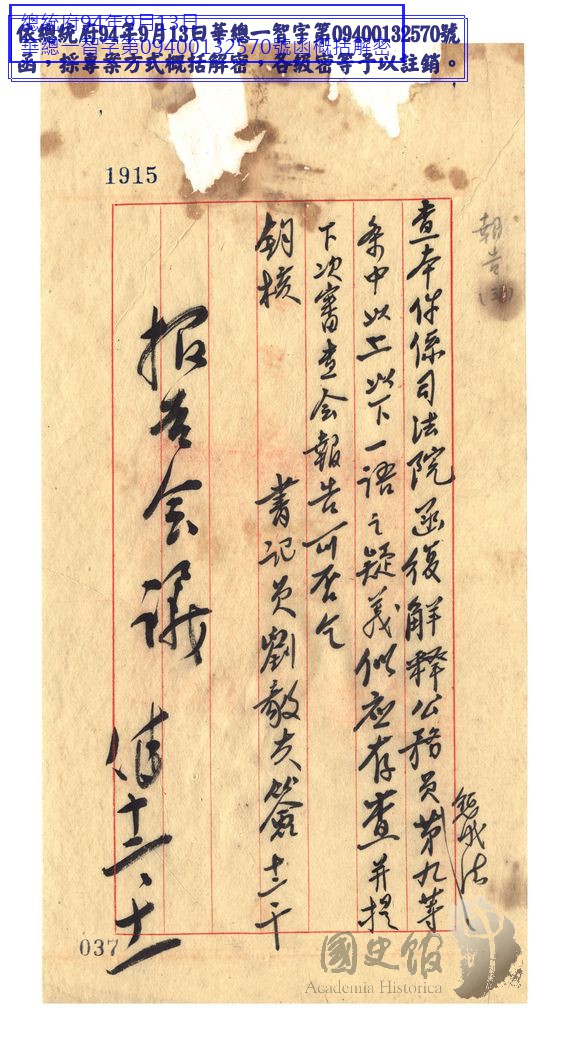 總統府94年9月13日
華總一智字第09400132570號函概括解密
依總統府94年9月13日華總一智字第09400132570號
函，採專案方式概括解密，各級密等予以註銷。
1915
報告
查本件係司法院函復解釋公務員懲戒法第九等
条中以上以下一语之疑義似应存查并提
下次審查会報告可否乞
鈞核
書記員劉毅夫簽 十二、十
报告会議
十二、十一
037
國史館
Academia Historica